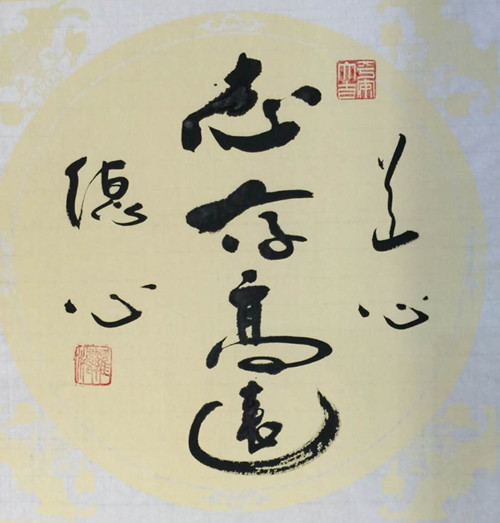 道心
志存高遠
德心